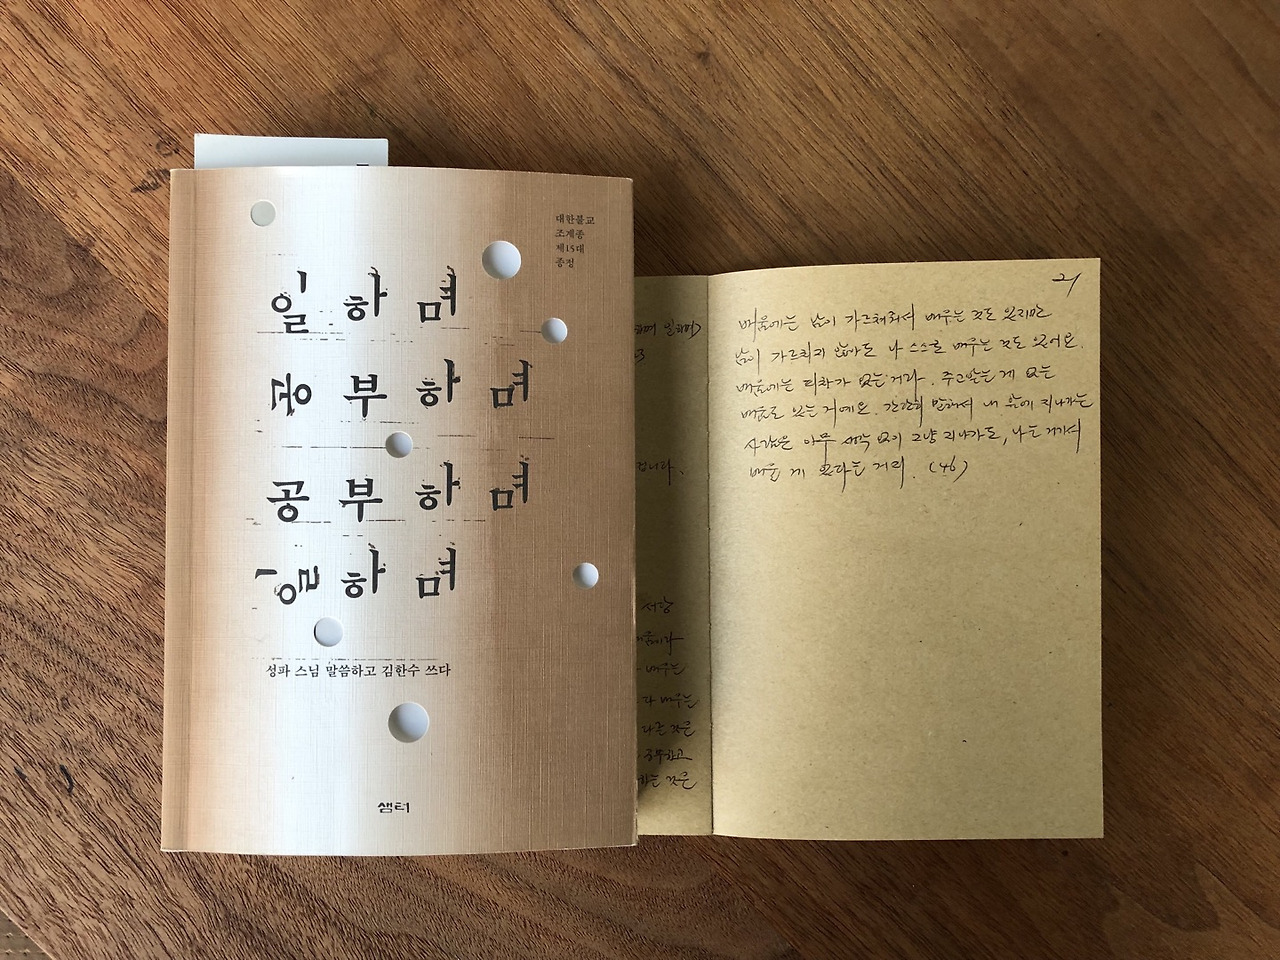 대한불교
조계종
제15대
종정
일하며
공부하며
공부하며
일하며
성파 스님 말씀하고 김한수 쓰다
샘터
21
배움에는 남이 가르쳐줘서 배우는 것도 있지만
남이 가르치지 않아도 나 스스로 배우는 것도 있어요.
배움에는 피차가 없는 거라. 주고받는 게 없는
배움도 있는 거예요. 간단히 말해서 내 앞에 지나가는
사람은 아무 생각 없이 그냥 지나가도, 나는 거기서
배울 게 있다는 거라. (46)
하며 일하며>
니다.
서상
배우는
다 배우는
다른 것은
공부하고
하는 것은